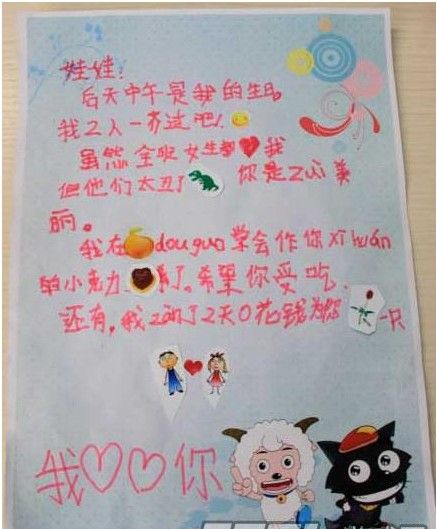 娃娃：
后天中午是我的生日。
我2人一齐过吧！
虽然全班女生都我
但他们太丑了 你是zuì美
丽。
我在douguo学会作你xǐ huán
的小克力了。希望你受吃.
还有，我2天0花钱为你一只
我♡♡你